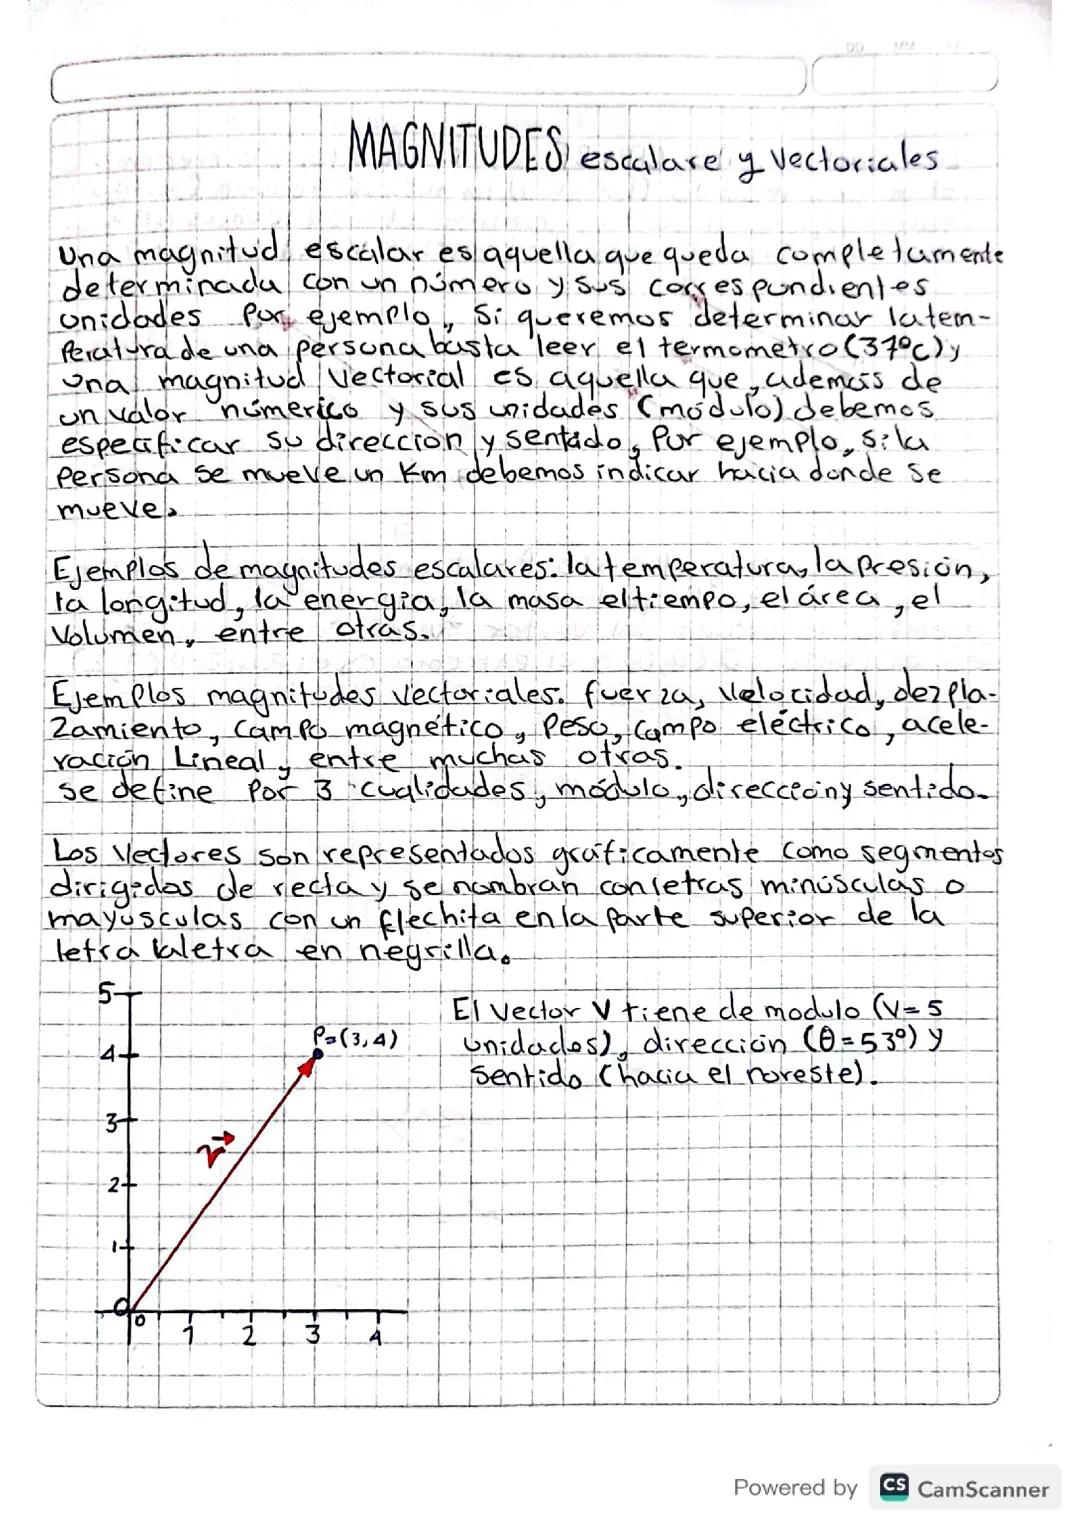 DD MM AA
MAGNITUDES escalare y vectoriales
Una magnitud escalar es aquella que queda completamente
determinada con un número y sus correspondientes
unidades Por ejemplo, si queremos determinar la tem-
peratura de una persona basta leer el termometro (37°C) y
una magnitud vectorial es aquella que, además de
un valor númerico y sus unidades (módulo) debemos
especificar su direccion y sentido, Por ejemplo, si la
persona se mueve un Km debemos indicar hacia donde se
mueve.
Ejemplos de magnitudes escalares: la temperatura, la presión,
la longitud, la energia, la masa el tiempo, el área, el
Volumen, entre otras.
Ejemplos magnitudes vectoriales. fuerza, Velocidad, dezpla-
zamiento, campo magnético, Peso, campo eléctrico, acele-
ración Lineal, entre muchas otras.
se define por 3 cualidades, módulo, direcciony sentido.
Los Vectores son representados gráficamente como segmentos
dirigidos de recta y se nombran con letras minúsculas o
mayúsculas con un flechita en la parte superior de la
letra la letra en negrilla.
5
El vector V tiene de modulo (V=5
P=(3,4)
unidades), dirección (θ=53°) y
4
sentido (hacia el noreste).
3
v→
2
1
0
0 1 2 3 4
Powered by CS CamScanner